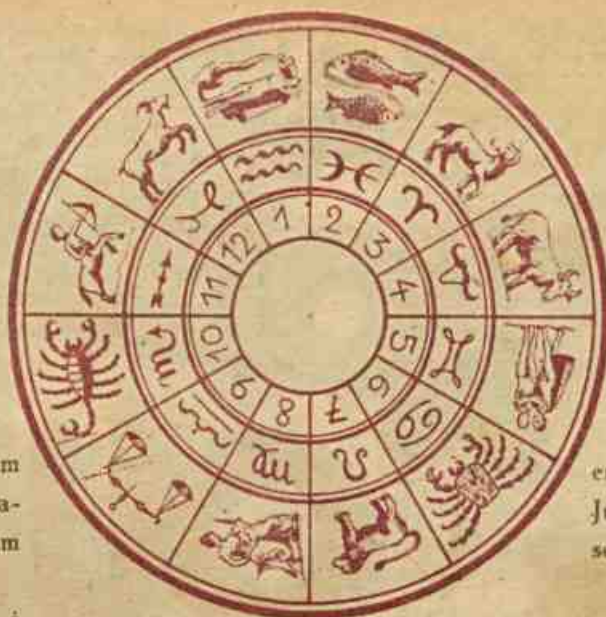 1
2
3
4
5
6
7
8
9
10
11
12
m
a-
m
Ju